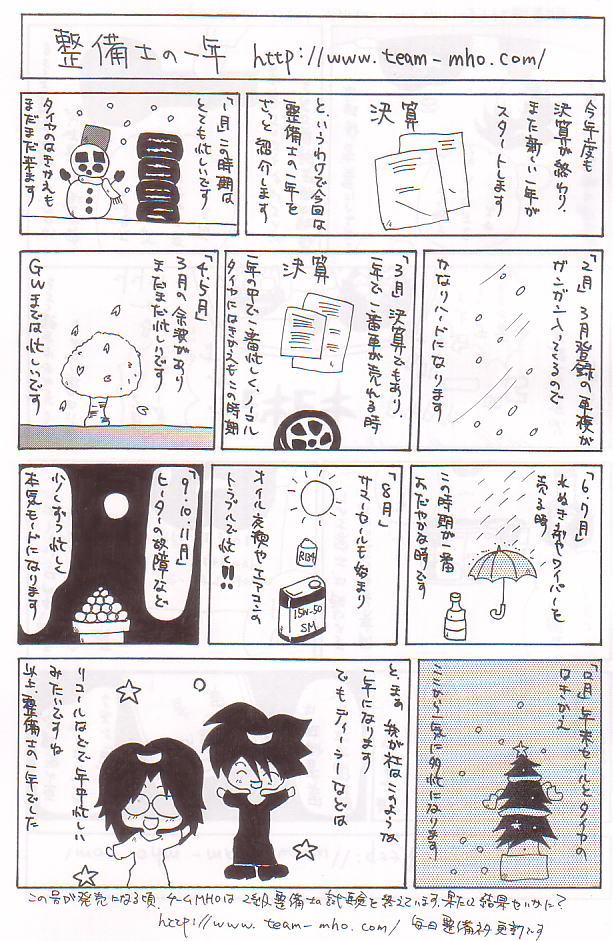 整備士の一年 http://www.team-mho.com/
今年度も
決算が終わり、
また新しい一年が
スタートします
決算
と、いうわけで今回は
整備士の一年を
ざっと紹介します
「1月」この時期は
とても忙しいです
タイヤのはきかえも
まだまだ来ます
「2月」3月登録の車検が
ガンガン入ってくるので
かなりハードになります
「3月」決算でもあり、
一年で一番車が売れる時
決算
一年の中で一番忙しく、ノーマル
タイヤにはきかえもこの時期
「4、5月」
3月の余波があり
まだまだ忙しいです
GWまでは忙しいです
「6、7月」
水ぬき剤やワイパーを
売る時
この時期が一番
おだやかな時です
「8月」
サマーセールも始まり
オイル交換やエアコンの
トラブルで忙しく!!
15W-50
SM
「9、10、11月」
ヒーターの故障など
少しずつ忙しく
本気モードになります
「12月」年末セールとタイヤの
はきかえ
ここから一気に多忙になります
と、まあ我が社はこのような
一年になります
でもディーラーなどは
リコールなどで年中忙しい
みたいですね
以上、整備士の一年でした
この号が発売になる頃、チームMHOは2級整備士の試験を終えています。果たして結果はいかに?
http://www.team-mho.com/ 毎日整備ネタ更新です